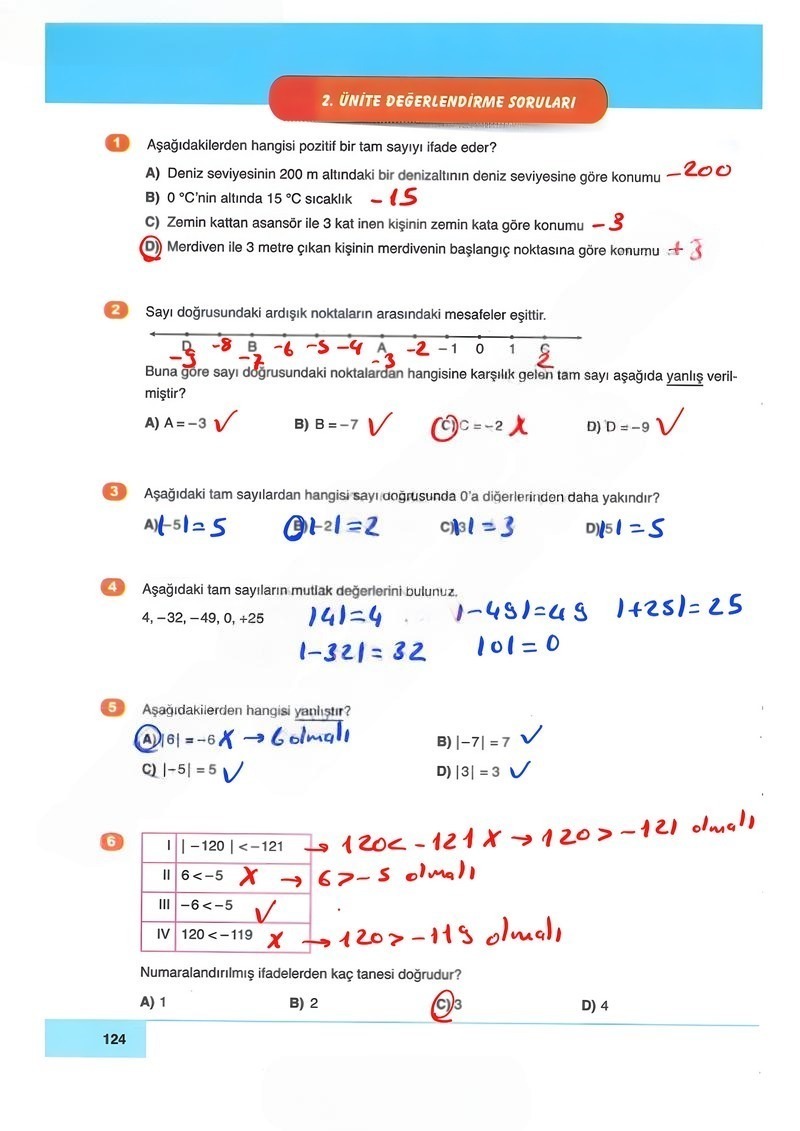 2. ÜNİTE DEĞERLENDİRME SORULARI
1 Aşağıdakilerden hangisi pozitif bir tam sayıyı ifade eder?
A) Deniz seviyesinin 200 m altındaki bir denizaltının deniz seviyesine göre konumu -200
B) 0 °C'nin altında 15 °C sıcaklık -15
C) Zemin kattan asansör ile 3 kat inen kişinin zemin kata göre konumu -3
D) Merdiven ile 3 metre çıkan kişinin merdivenin başlangıç noktasına göre konumu +3
2 Sayı doğrusundaki ardışık noktaların arasındaki mesafeler eşittir.
D -8 B -6 -5 -4 A -2 -1 0 1 C
-9 -7 -3 2
Buna göre sayı doğrusundaki noktalardan hangisine karşılık gelen tam sayı aşağıda yanlış veril-
miştir?
A) A = -3 ✓ B) B = -7 ✓ C) C = -2 x D) D = -9 ✓
3 Aşağıdaki tam sayılardan hangisi sayı doğrusunda 0'a diğerlerinden daha yakındır?
A) |-5| = 5 B) |-2| = 2 C) |3| = 3 D) |5| = 5
4 Aşağıdaki tam sayıların mutlak değerlerini bulunuz.
4, -32, -49, 0, +25 |4|=4 |-49|=49 |+25|=25
|-32|=32 |0|=0
5 Aşağıdakilerden hangisi yanlıştır?
A) |6| = -6 x → 6 olmalı B) |-7| = 7 ✓
C) |-5| = 5 ✓ D) |3| = 3 ✓
6 I | -120 | < -121 → 120 < -121 x → 120 > -121 olmalı
II 6 < -5 x → 6 > -5 olmalı
III -6 < -5 ✓
IV 120 < -119 x → 120 > -119 olmalı
Numaralandırılmış ifadelerden kaç tanesi doğrudur?
A) 1 B) 2 C) 3 D) 4
124